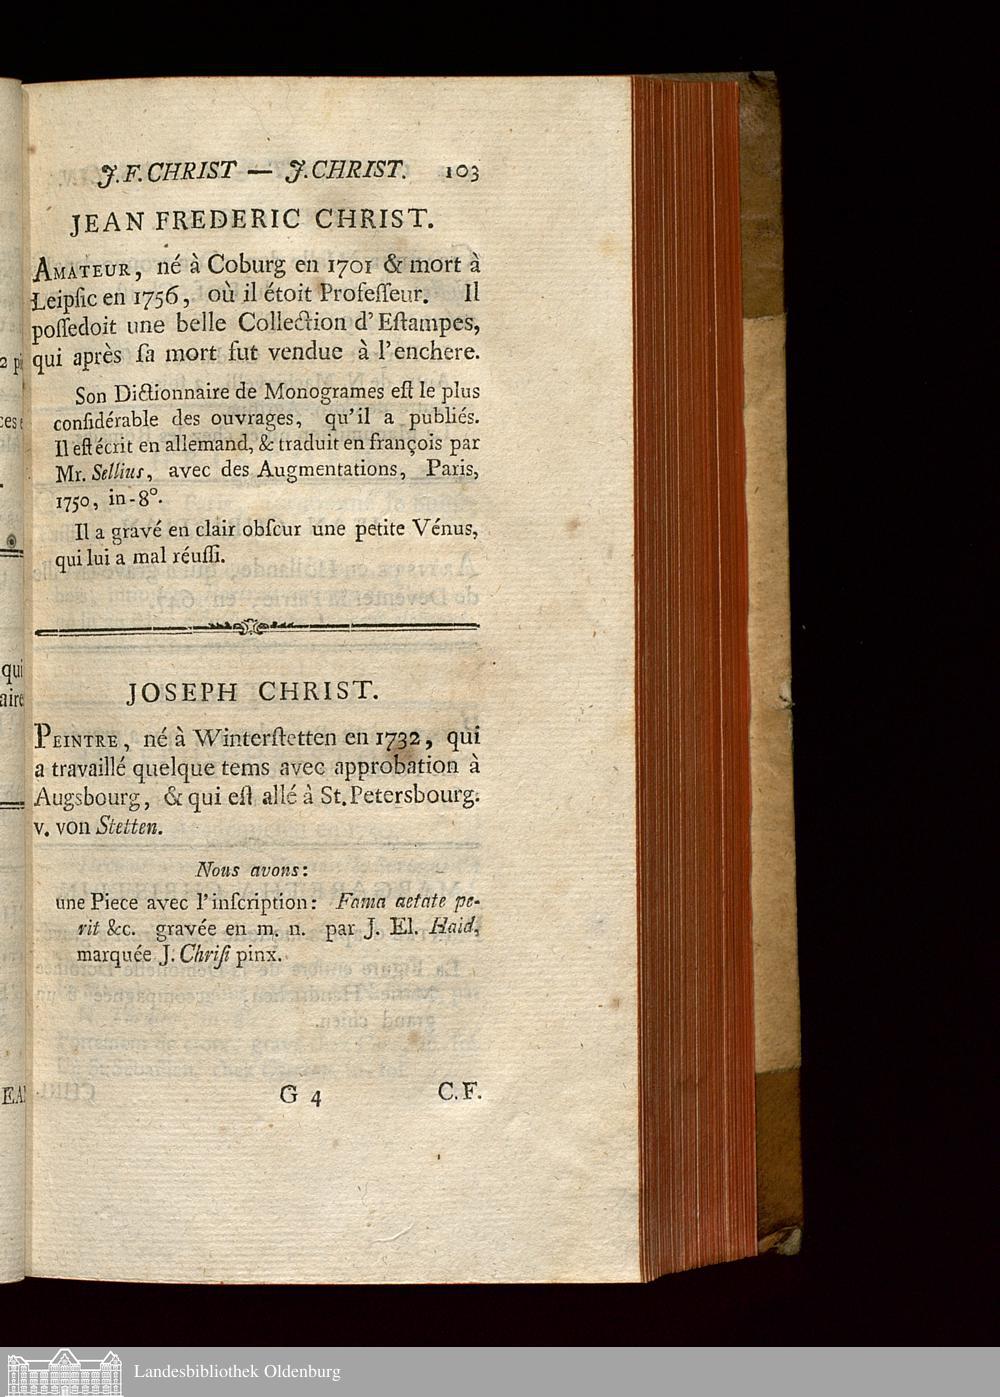 J. F. CHRIST — J. CHRIST. 103
JEAN FREDERIC CHRIST.
AMATEUR, né à Coburg en 1701 & mort à
Leipſic en 1756, où il étoit Profeſſeur. Il
poſſedoit une belle Collection d'Eſtampes,
qui après ſa mort fut vendue à l'enchere.
Son Dictionnaire de Monogrames eſt le plus
conſidérable des ouvrages, qu'il a publiés.
Il eſt écrit en allemand, & traduit en françois par
Mr. Sellius, avec des Augmentations, Paris,
1750, in-8°.
Il a gravé en clair obſcur une petite Vénus,
qui lui a mal réuſſi.
JOSEPH CHRIST.
PEINTRE, né à Winterſtetten en 1732, qui
a travaillé quelque tems avec approbation à
Augsbourg, & qui eſt allé à St. Petersbourg.
v. von Stetten.
Nous avons:
une Piece avec l'inſcription: Fama aetate pe-
rit &c. gravée en m. n. par J. El. Haid,
marquée J. Chriſt pinx.
G 4 C. F.
Landesbibliothek Oldenburg